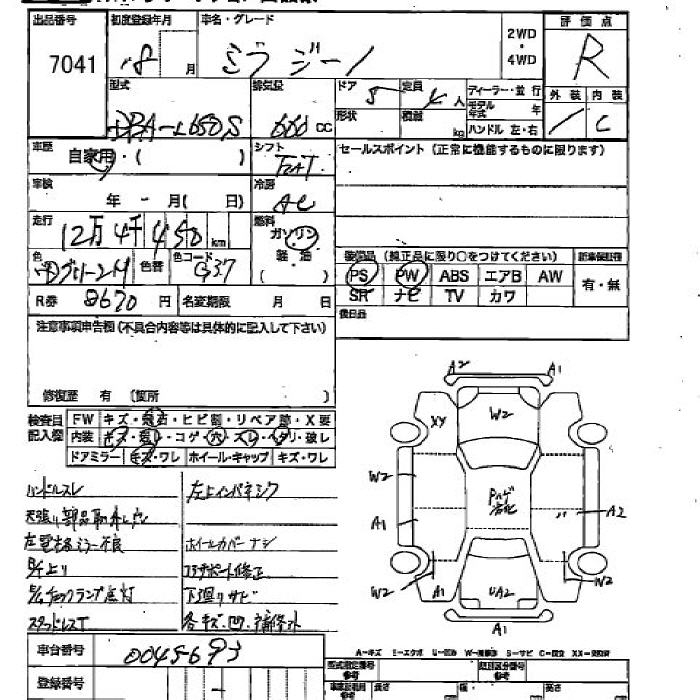 出品番号 初度登録年月 車名・グレード 2WD・4WD 評価点
7041 18 月 ミラジーノ R
型式 排気量 ドア 定員 ディーラー・並行 外装 内装
DBA-L650S 660 CC 5 4人 モデル年式 年 / C
形状 積載 kg ハンドル 左・右
車歴 シフト セールスポイント (正常に機能するものに限ります)
自家用・( ) FAT
車検 冷房
年 - 月( 日) AC
走行 燃料
12万4千450km ガソリン
軽油
( )
色 色替 色コード 装備品 (純正品に限り○をつけてください) 新車保証書
グリーンM G37 PS PW ABS エアB AW 有・無
R券 8670円 名変期限 月 日 SR ナビ TV カワ
注意事項申告欄(不具合内容等は具体的に記入して下さい) 後日品
修復歴 有 (箇所 )
検査員記入欄 FW キズ・飛石・ヒビ割・リペア跡・X要
内装 キズ・汚れ・コゲ・穴・スレ・ヘタリ・破レ
ドアミラー キズ・ワレ ホイール・キャップ キズ・ワレ
ハンドルスレ 左上インパネシワ
天張り部品取外し穴
左電格ミラー不良 ホイールカバーナシ
コアサポート修正
下廻りサビ
スタッドレスT 各キズ・凹・補修跡
A2 A1
XY W2
W2 Pハゲ劣化
A1 A2
W2 A1 UA2 W2
A1
A-キズ E-エクボ U-凹み W-補修跡 S-サビ C-腐食 XX-交換済
車台番号 0045693
型式指定番号 参考 類別区分番号 参考
登録番号 -
長さ 幅 高さ